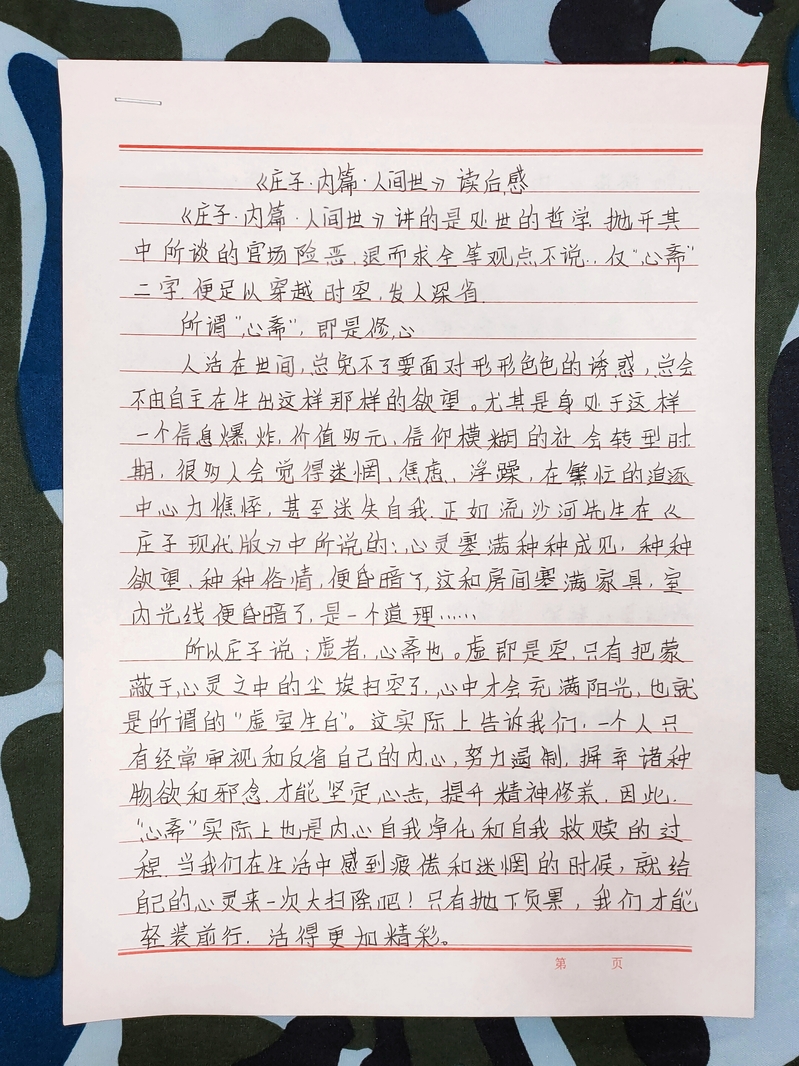 《庄子·内篇·人间世》读后感
《庄子·内篇·人间世》讲的是处世的哲学.抛开其
中所谈的官场险恶.退而求全等观点不说.,仅“心斋”
二字.便足以穿越时空,发人深省.
所谓“心斋”,即是修心
人活在世间,总免不了要面对形形色色的诱惑,总会
不由自主在生出这样那样的欲望。尤其是身处于这样
一个信息爆炸,价值多元、信仰模糊的社会转型时
期,很多人会觉得迷惘、焦虑、浮躁,在繁忙的追逐
中心力憔悴,甚至迷失自我.正如流沙河先生在《
庄子现代版》中所说的:心灵塞满种种成见,种种
欲望、种种俗情,便昏暗了,这和房间塞满家具,室
内光线便昏暗了,是一个道理……
所以庄子说;虚者,心斋也。虚即是空,只有把蒙
蔽于心灵之中的尘埃扫空了,心中才会充满阳光,也就
是所谓的“虚室生白”。这实际上告诉我们,一个人只
有经常审视和反省自己的内心,努力遏制,摒弃诸种
物欲和邪念.才能坚定心志,提升精神修养.因此.
“心斋”实际上也是内心自我净化和自我救赎的过
程.当我们在生活中感到疲倦和迷惘的时候,就给
自己的心灵来一次大扫除吧!只有抛下负累,我们才能
轻装前行.活得更加精彩。
第 页